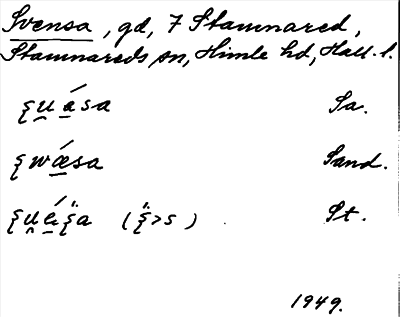 Svensa, gd, 7 Stamnared,
Stamnareds sn, Himle hd, Hall. l.
ʂu̯á̱sa Sa.
ʂwǽ̱sa Sand.
St.
1949.